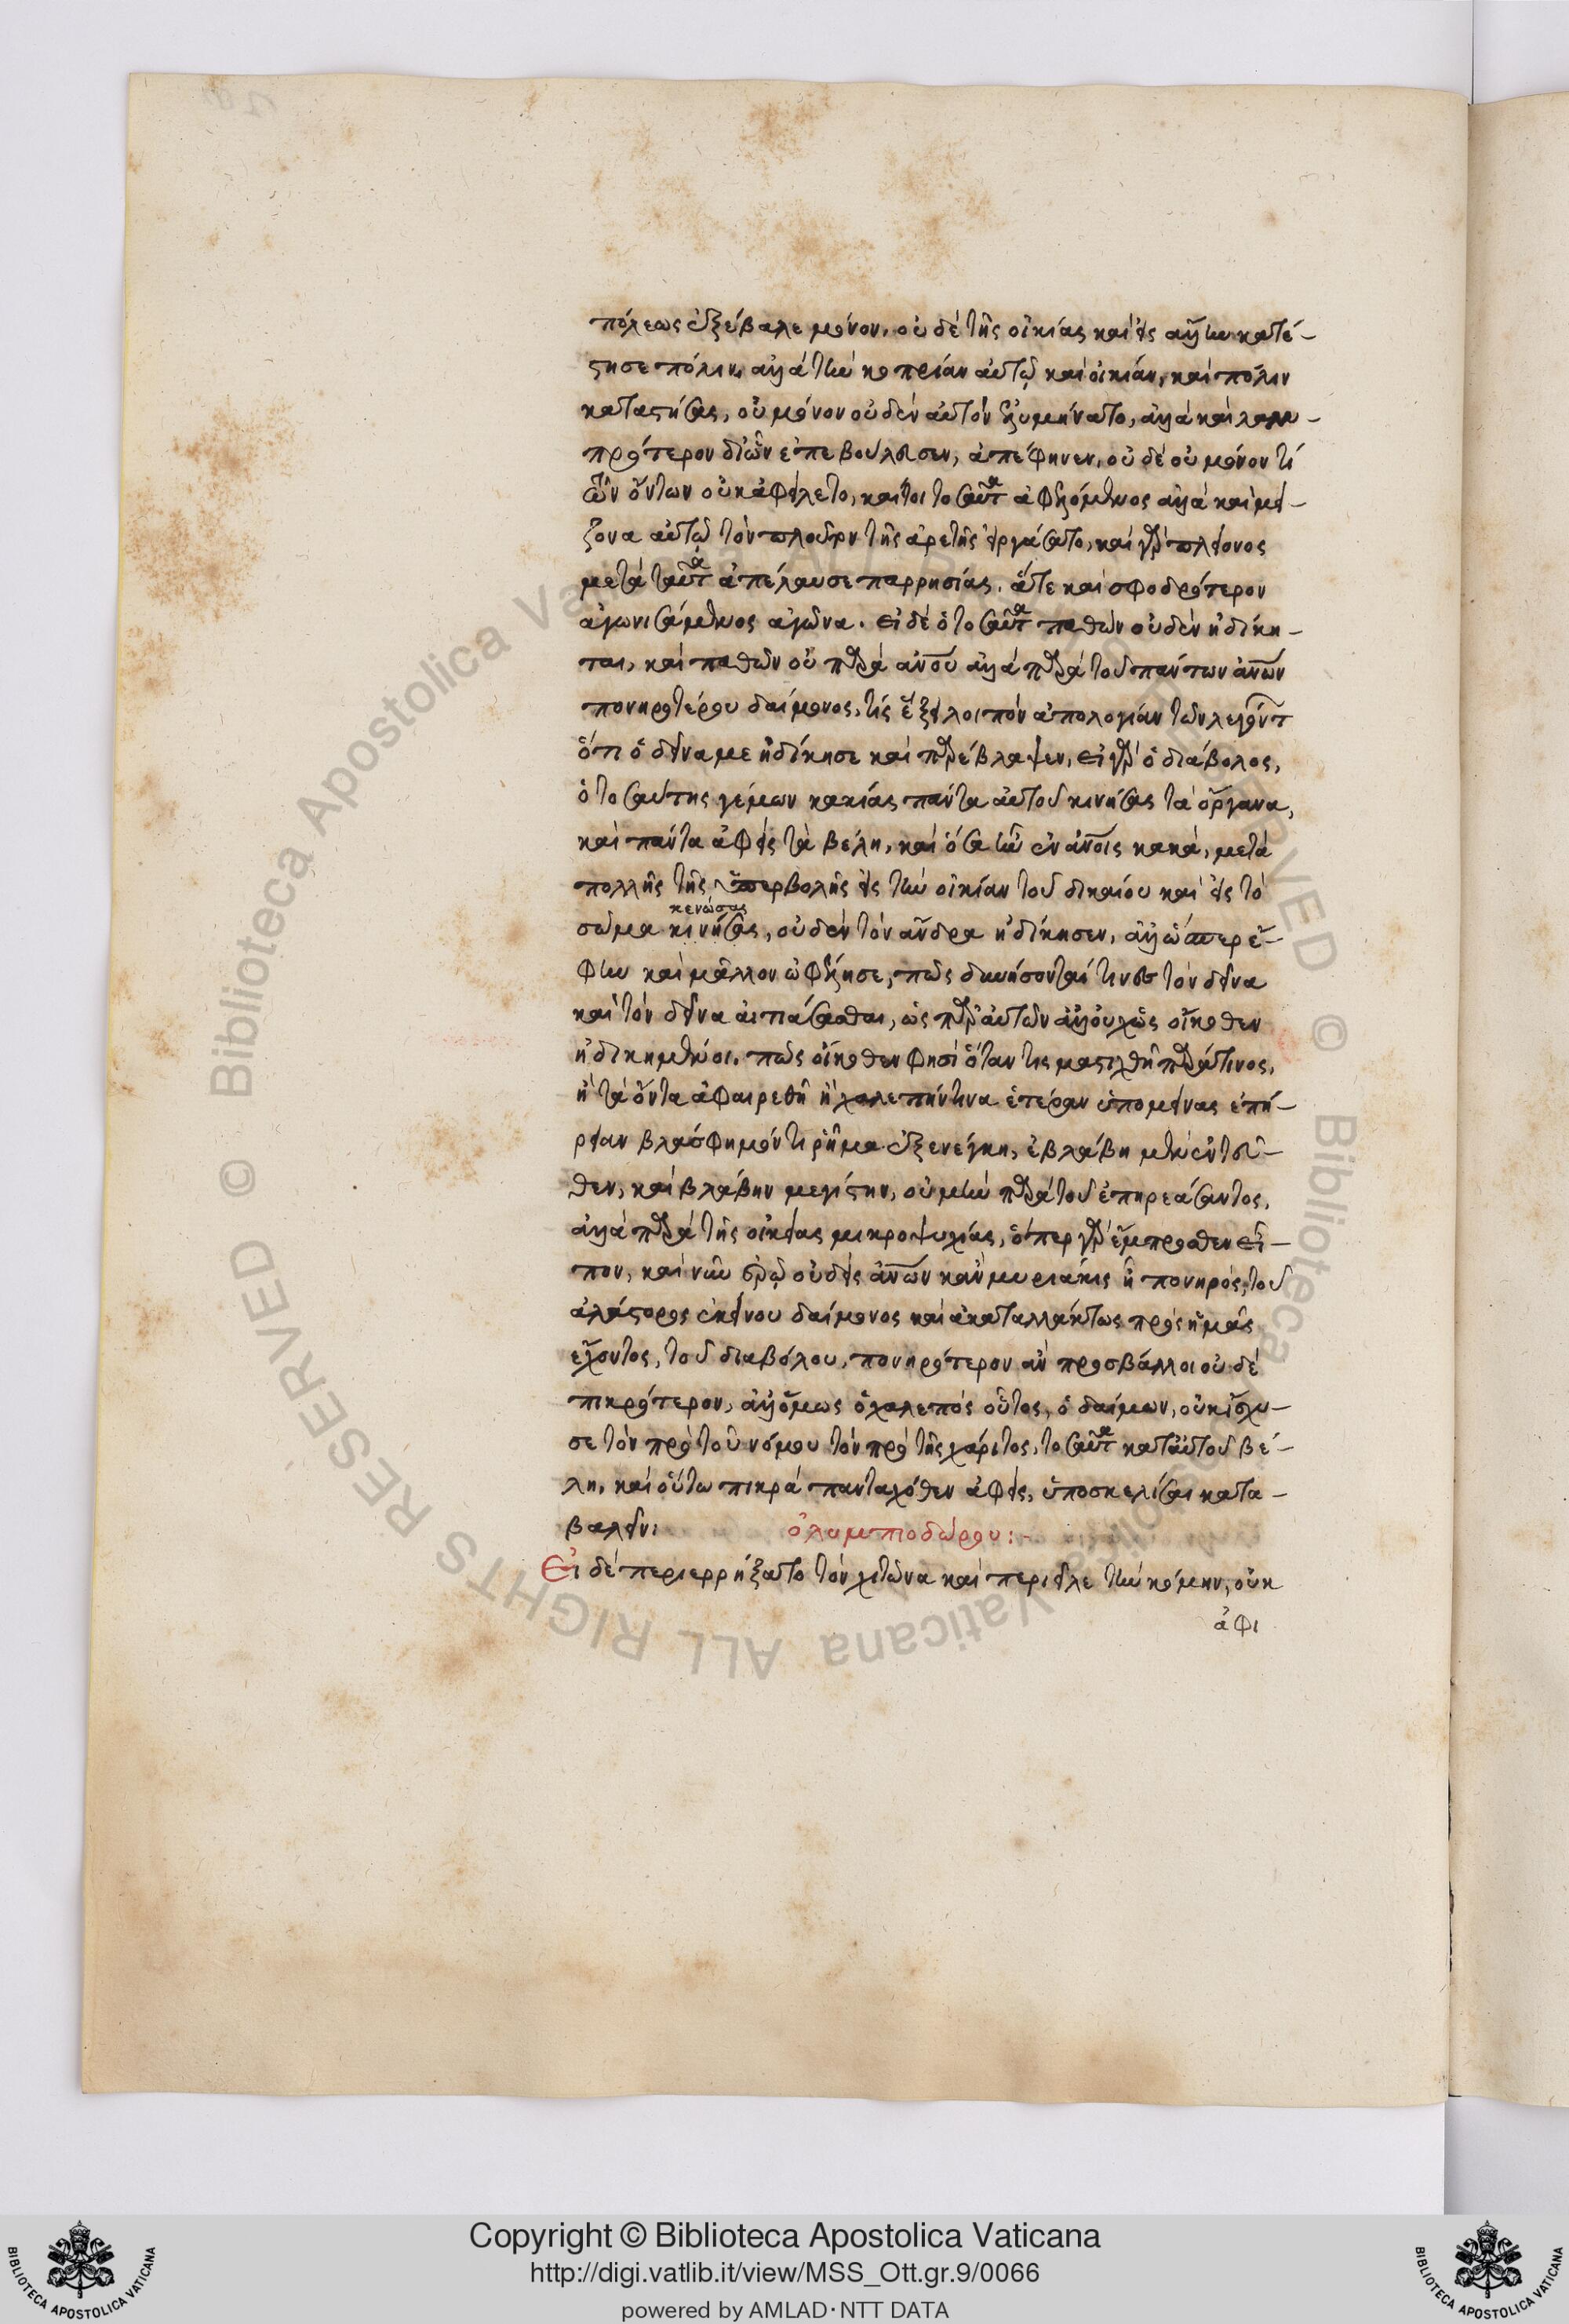 πόλεως ἐξέβαλε μόνον, οὐδὲ τῆς οἰκίας καὶ εἰς ἄλλην κατέ-
στησε πόλιν, ἀλλὰ τὴν κοπρίαν αὐτῷ καὶ οἰκίαν, καὶ πόλιν
καταστήσας, οὐ μόνον οὐδὲν αὐτὸν ἐλυμήνατο, ἀλλὰ καὶ λαμ-
πρότερον δι' ὧν ἐπεβούλευσεν, ἀπέφηνεν, οὐδὲ οὐ μόνον τί
τῶν ὄντων οὐκ ἀφείλετο, καίτοι τοσαῦτα ἀφελόμενος ἀλλὰ καὶ μεί-
ζονα αὐτῷ τὸν πλοῦτον τῆς ἀρετῆς εἰργάσατο, καὶ γὰρ πλείονος
μετὰ ταῦτα ἀπέλαυσε παρρησίας, ἅτε καὶ σφοδρότερον
ἀγωνισάμενος ἀγῶνα. εἰ δὲ ὁ τοσαῦτα παθὼν οὐδὲν ἠδίκη-
ται, καὶ παθὼν οὐ παρὰ ἀνου ἀλλὰ παρὰ τοῦ πάντων ἀνων
πονηροτέρου δαίμονος, τίς ἕξει λοιπὸν ἀπολογίαν τῶν λεγόντ
ὅτι ὁ δεῖνα με ἠδίκησε καὶ παρέβλαψεν, εἰ γὰρ ὁ διάβολος,
ὁ τοσαύτης γέμων κακίας πάντα αὐτοῦ κινήσας τὰ ὄργανα,
καὶ πάντα ἀφεὶς τὰ βέλη, καὶ ὅσα ἦν ἐν ἀνοις κακὰ, μετὰ
πολλῆς τῆς ὑπερβολῆς εἰς τὴν οἰκίαν τοῦ δικαίου καὶ εἰς τὸ
κενώσας
σῶμα κινήσας, οὐδὲν τὸν ἄνδρα ἠδίκησεν, ἀλλ' ὥσπερ ἔ-
φην καὶ μᾶλλον ὠφέλησε, πῶς δυνήσονταί τινες τὸν δεῖνα
καὶ τὸν δεῖνα αἰτιάσασθαι, ὡς παρ' αὐτῶν ἀλλ' οὐχ ὡς οἴκοθεν
ἠδικημένοι. πῶς οἴκοθεν φησὶ ὅταν τις μαστιχθῇ παρά τινος,
ἢ τὰ ὄντα ἀφαιρεθῇ ἢ χαλεπήν τινα ἑτέραν ὑπομείνας ἐπή-
ρειαν βλάσφημόν τι ῥῆμα ἐξενέγκῃ, ἐβλάβη μὲν ἐντεῦ-
θεν, καὶ βλάβην μεγίστην, οὐ μὴν παρὰ τοῦ ἐπηρεάσαντος,
ἀλλὰ παρὰ τῆς οἰκείας μικροψυχίας, ὅπερ γὰρ ἔμπροσθεν εἶ-
πον, καὶ νῦν ἐρῶ οὐδεὶς ἀνων κἂν μυριάκις ᾖ πονηρός, τοῦ
ἀλάστορος ἐκείνου δαίμονος καὶ ἀκαταλλάκτως πρὸς ἡμᾶς
ἔχοντος, τοῦ διαβόλου, πονηρότερον ἂν προσβάλλοι οὐδὲ
πικρότερον, ἀλλ' ὅμως ὁ χαλεπὸς οὗτος, ὁ δαίμων, οὐκ ἴσχυ-
σε τὸν πρὸ τοῦ νόμου τὸν πρὸ τῆς χάριτος, τοσαῦτα κατ' αὐτοῦ βέ-
λη, καὶ οὕτω πικρὰ πανταχόθεν ἀφεὶς, ὑποσκελίσαι κατα-
βαλεῖν:
ὀλυμπιοδώρου:
Εἰ δὲ περιερρήξατο τὸν χιτῶνα καὶ περιεῖλε τὴν κόμην, οὐκ
ἀφι
Copyright © Biblioteca Apostolica Vaticana
http://digi.vatlib.it/view/MSS_Ott.gr.9/0066
powered by AMLAD·NTT DATA
BIBLIOTECA APOSTOLICA VATICANA
BIBLIOTECA APOSTOLICA VATICANA
© Biblioteca Apostolica Vaticana ALL RIGHTS RESERVED